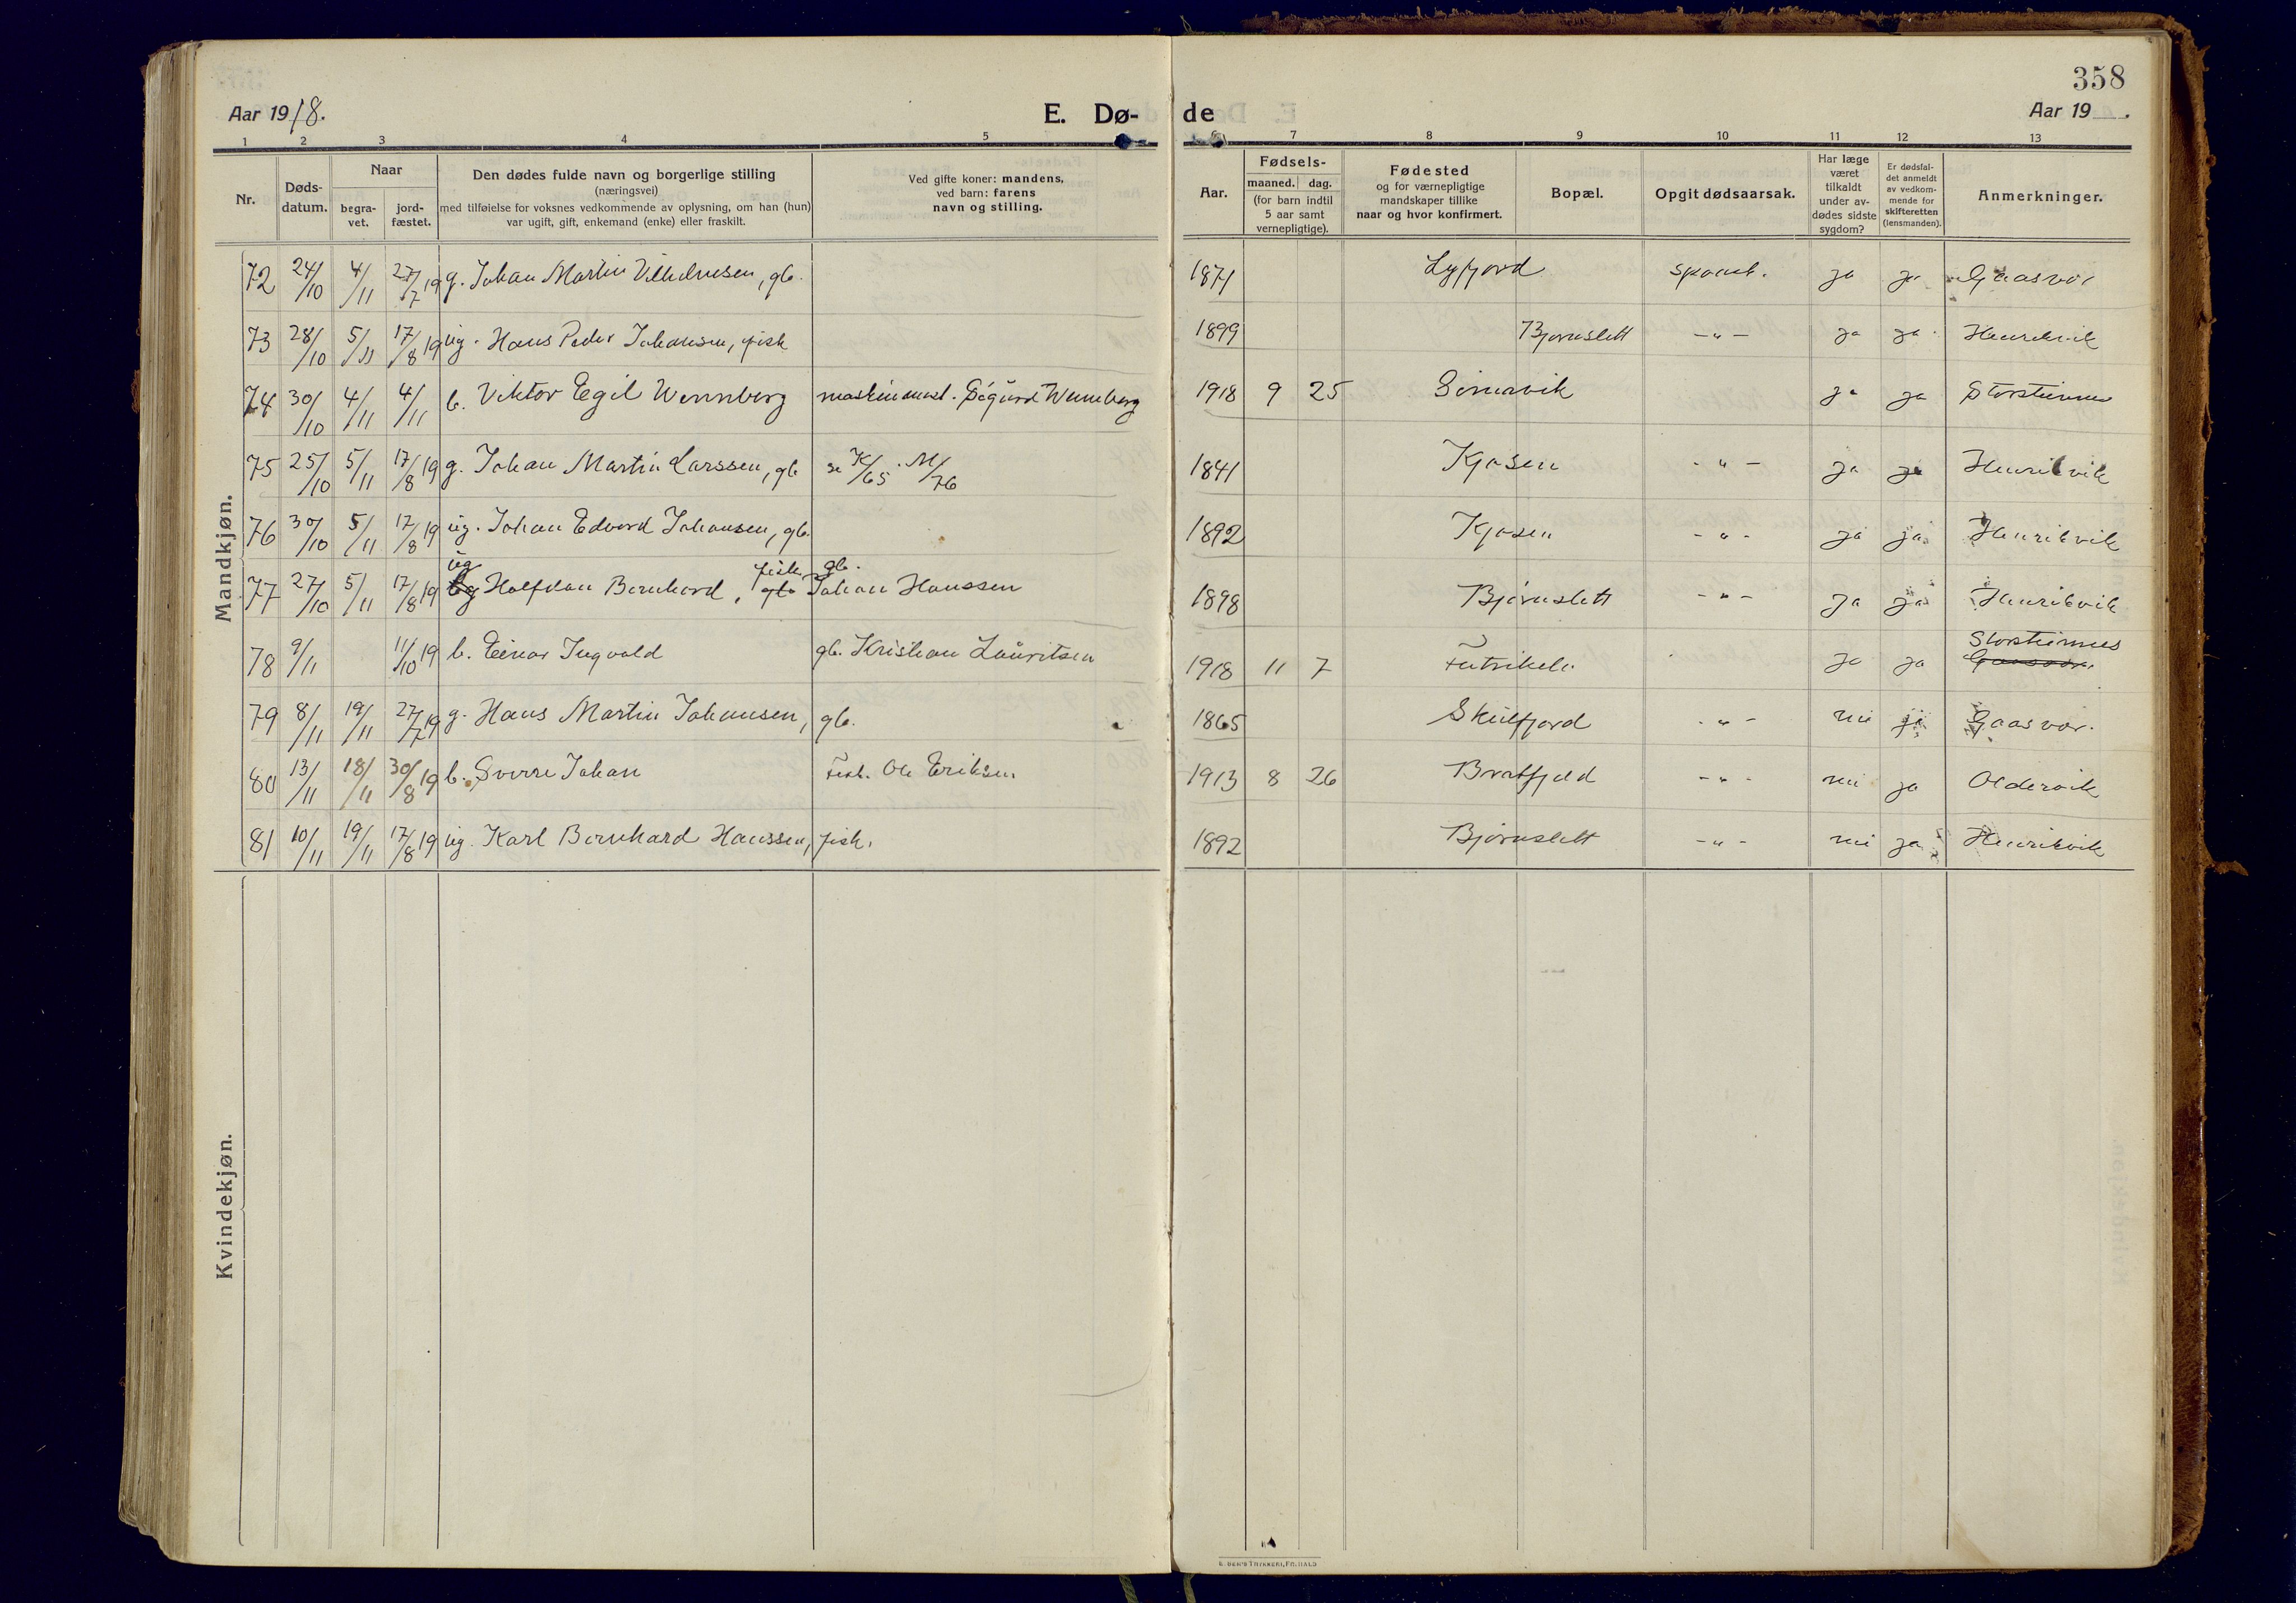 358
Aar 1918. E. Dø- de Aar 19 .
1 2 3 4 5 6 7 8 9 10 11 12 13
Nr. Døds-datum. Naar begra-vet. jord-fæstet. Den dødes fulde navn og borgerlige stilling (næringsvei) med tilføielse for voksnes vedkommende av oplysning, om han (hun) var ugift, gift, enkemand (enke) eller fraskilt. Ved gifte koner: mandens, ved barn: farens navn og stilling. Aar. Fødsels- maaned. dag. (for barn indtil 5 aar samt vernepligtige). Fødested og for værnepligtige mandskaper tillike naar og hvor konfirmert. Bopæl. Opgit dødsaarsak. Har læge været tilkaldt under av-dødes sidste sygdom? Er dødsfal-det anmeldt av vedkom-mende for skifteretten (lensmanden). Anmerkninger.
Mandkjøn.
72 24/10 4/11 27/7 19 g. Johan Martin Vilhelmsen, gb. 1871 Lyfjord spansk. ja ja Gaasvær
73 28/10 5/11 17/8 19 ug. Hans Peder Johansen, fisk 1899 Bjørnslett -"- ja ja Henrikvik
74 30/10 4/11 4/11 b. Viktor Egil Wennberg maskinmest. Sigurd Wennberg 1918 9 25 Simavik ja ja Storsteinnes
75 25/10 5/11 17/8 19 g. Johan Martin Larssen, gb se K/65. M/76 1841 Kjosen -"- ja ja Henrikvik
76 30/10 5/11 17/8 19 ug. Johan Edvard Johansen, gb. 1892 Kjosen -"- ja ja Henrikvik
77 27/10 5/11 17/8 19 ug Halfdan Bernhard, fisk. gb. Johan Hanssen 1898 Bjørnslett -"- ja ja Henrikvik
78 9/11 11/10 19 b. Einar Ingvald gb. Kristian Lauritsen 1918 11 7 Futrikelv ja ja Storsteinnes
79 8/11 19/11 27/7 19 g. Hans Martin Johansen, gb. 1865 Skulfjord -"- nei ja Gaasvær.
80 13/11 18/11 30/8 19 b. Sverre Johan Fisk. Ole Eriksen 1913 8 26 Bratfjeld -"- nei ja Oldervik
81 10/11 19/11 17/8 19 ug. Karl Bernhard Hanssen, fisk. 1892 Bjørnslett -"- nei ja Henrikvik
Kvindekjøn.